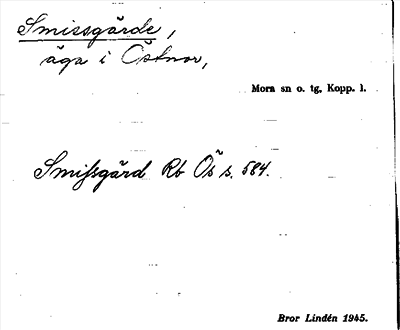 Smissgärde,
äga i Östnor,
Mora sn o. tg, Kopp. l.
Smissgärd Rb Ös s. 584.
Bror Lindén 1945.